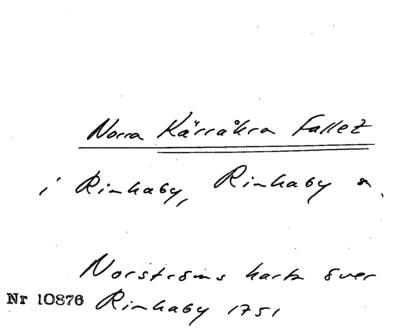 Norra Kärråkra Fallet
i Rinkaby, Rinkaby s.
Norströms karta över
Nr 10876 Rinkaby 1751